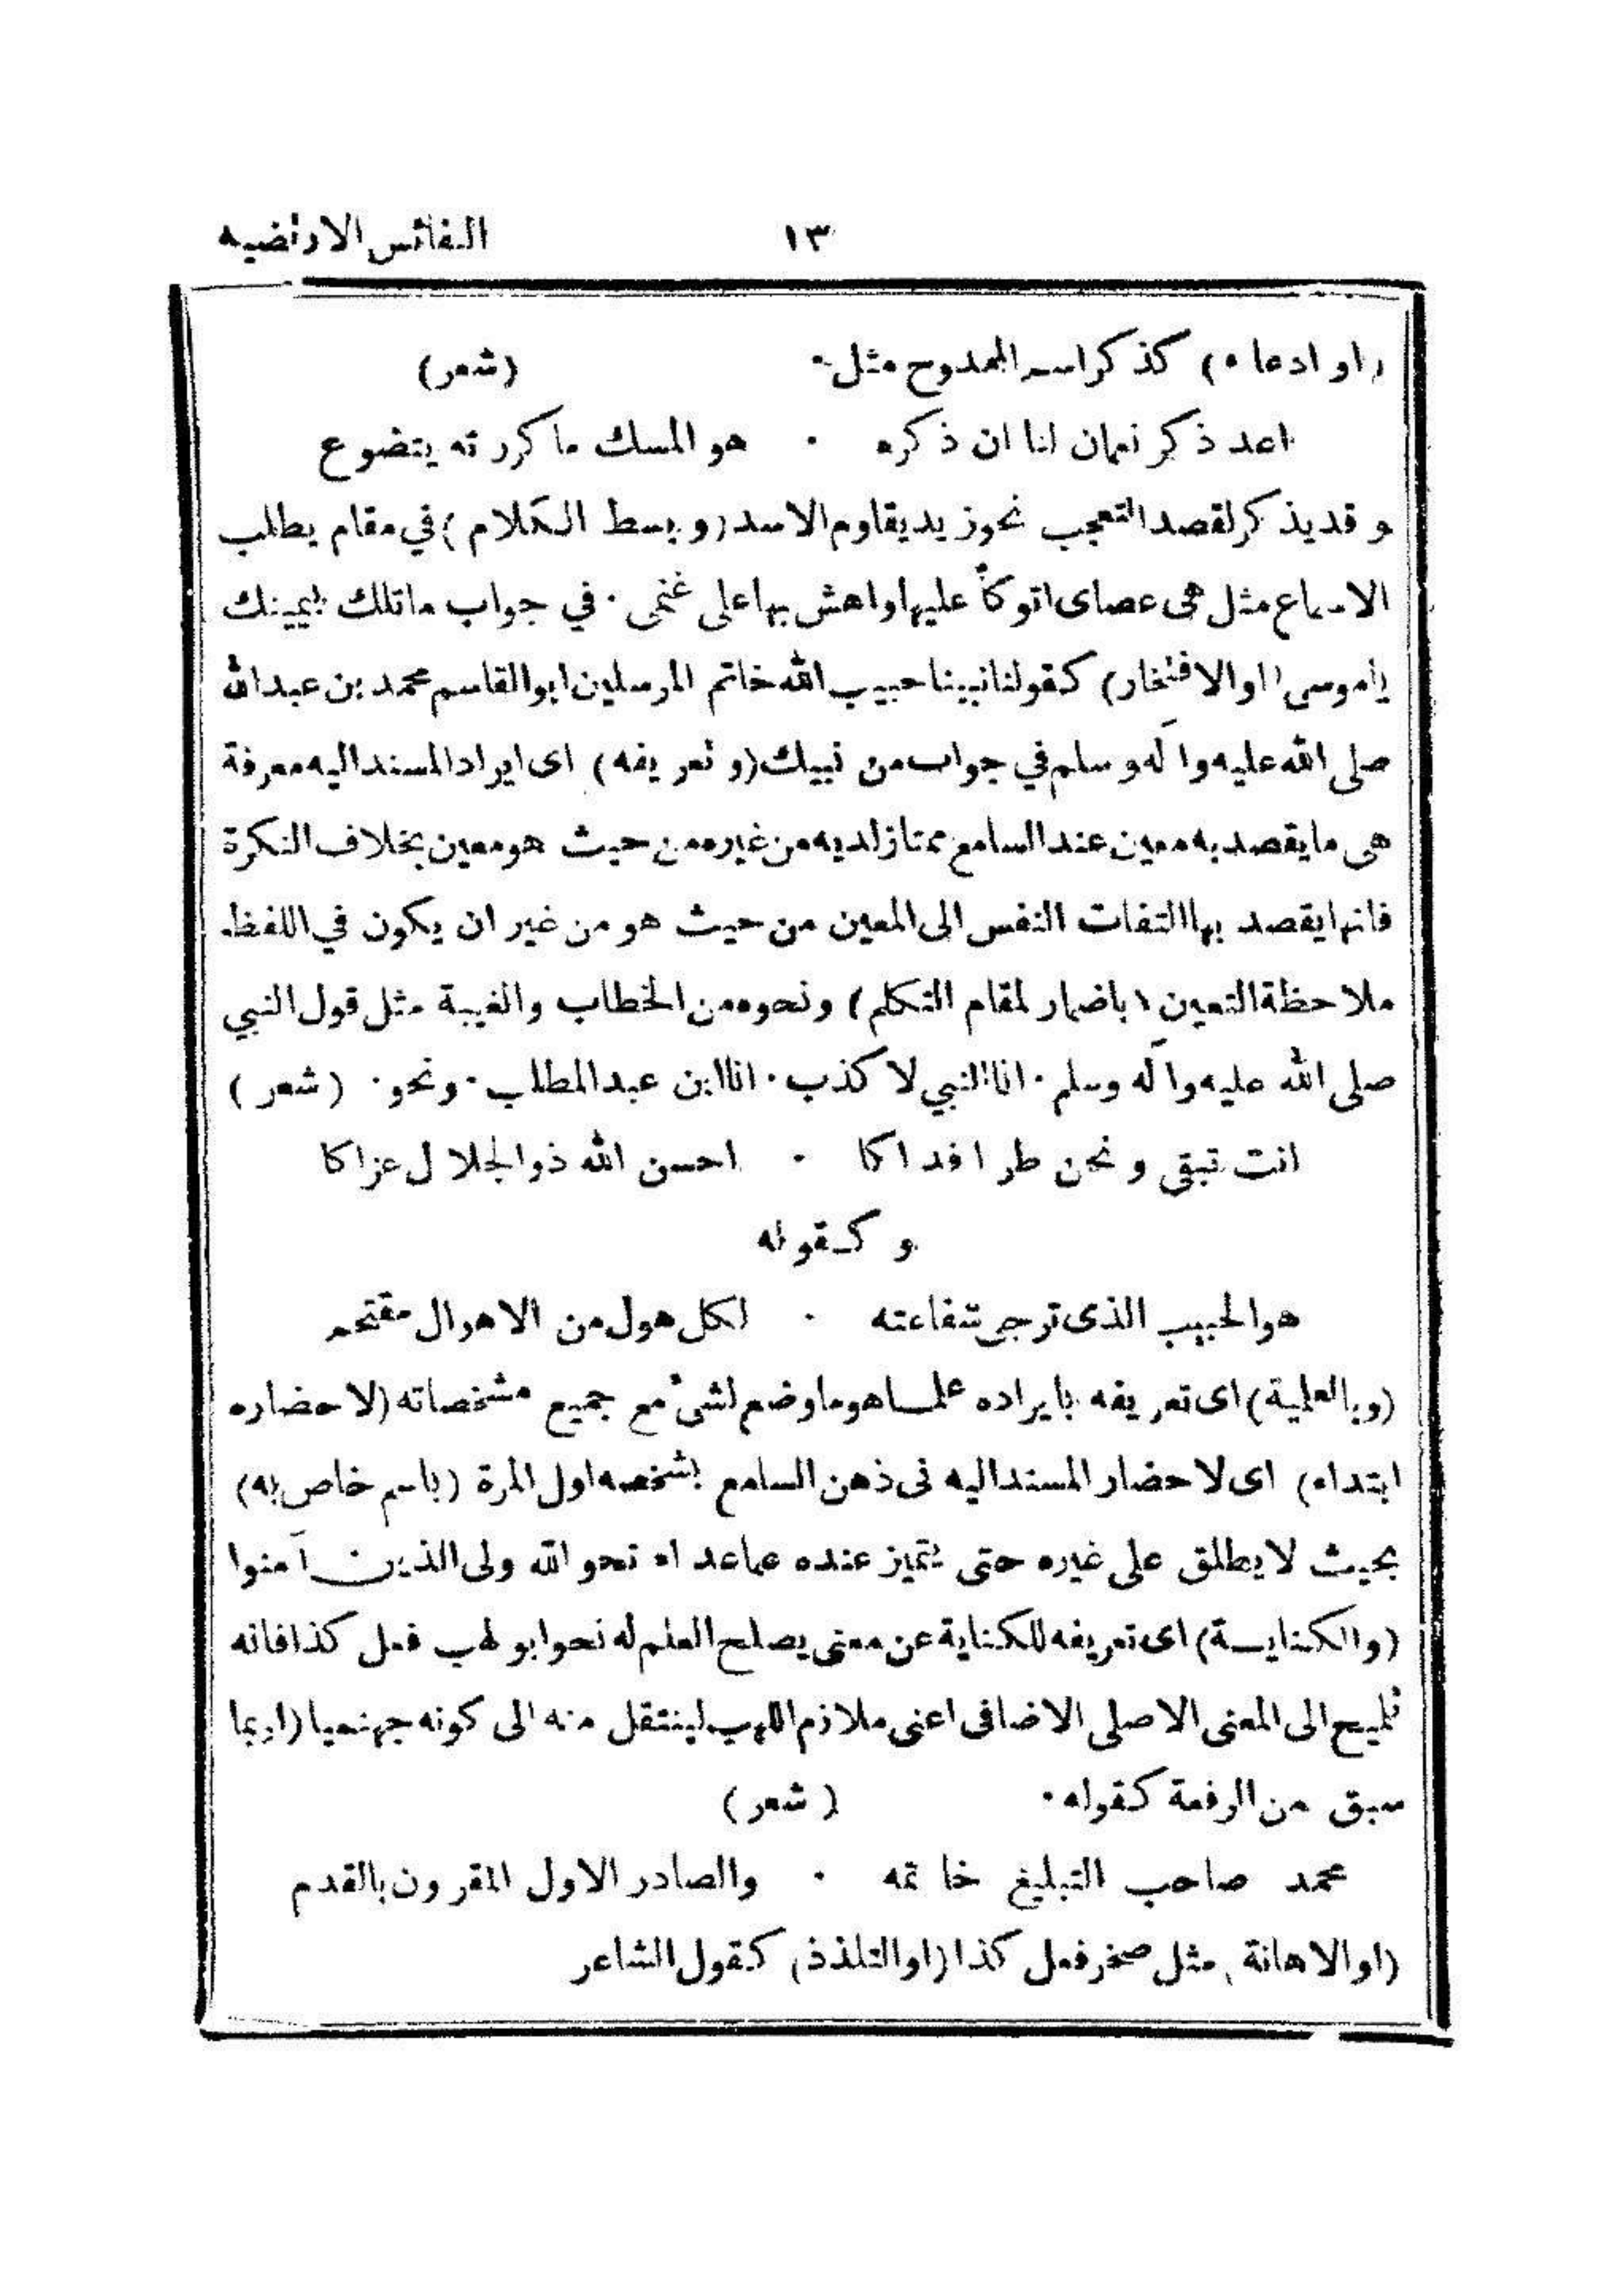 النفائس الارتضيه ١٣
(او ادعاء) كذكراسم الممدوح مثل٠ (شعر)
اعد ذكر نعمان لنا ان ذكره ٠ هو المسك ماكررته يتضوع
وقديذكر لقصد التعجب نحوزيد يقاوم الاسد (وبسط الكلام) في مقام يطلب
الاسماع مثل هى عصاى اتوكأ عليها واهش بها على غنمى٠ في جواب ماتلك بيمينك
يأموسى (اوالافتخار) كقولنا نبينا حبيب الله خاتم المرسلين ابوالقاسم محمد بن عبدالله
صلى الله عليه وآله وسلم في جواب من نبيك (وتعريفه) اى ايراد المسند اليه معرفة
هى مايقصد به معين عند السامع ممتاز لديه من غيره من حيث هومعين بخلاف النكرة
فانها يقصد بها التفات النفس الى المعين من حيث هو من غير ان يكون في اللفظ
ملاحظة التعين (باضمار لمقام التكلم) ونحوه من الخطاب والغيبة مثل قول النبي
صلى الله عليه وآله وسلم٠ انا النبي لا كذب٠ انا ابن عبدالمطلب٠ ونحو٠ (شعر)
انت تبقى ونحن طرا فداكا ٠ احسن الله ذوالجلال عزاكا
وكقوله
هوالحبيب الذى ترجى شفاعته ٠ لكل هول من الاهوال مقتحم
(وبالعلمية) اى تعريفه بايراده علما هو ماوضع لشئ مع جميع مشخصاته (لاحضاره
ابتداء) اى لاحضار المسند اليه فى ذهن السامع بشخصه اول المرة (باسم خاص به)
بحيث لايطلق على غيره حتى يتميز عنده عماعداه نحو الله ولى الذين آمنوا
(والكناية) اى تعريفه للكناية عن معنى يصلح العلم له نحو ابولهب فعل كذا فانه
تلميح الى المعنى الاصلى الاضافى اعنى ملازم اللهب لينتقل منه الى كونه جهنميا (اوبما
سبق من الرفعة كقوله٠ (شعر)
محمد صاحب التبليغ خاتمه ٠ والصادر الاول المقرون بالقدم
(اوالاهانة) مثل صخر فعل كذا (اوالتلذذ) كقول الشاعر